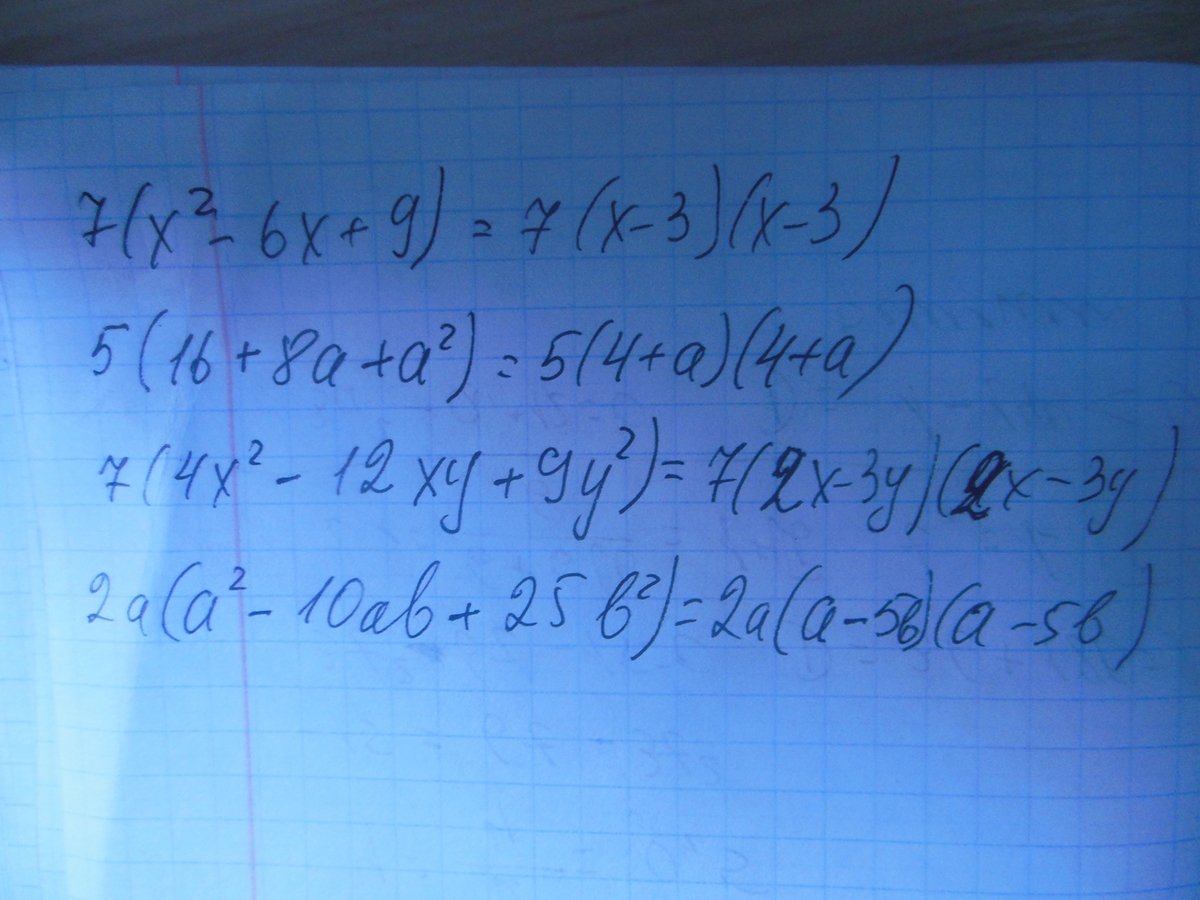 7(x² - 6x + 9) = 7(x-3)(x-3)
5(16 + 8a + a²) = 5(4+a)(4+a)
7(4x² - 12xy + 9y²) = 7(2x-3y)(2x-3y)
2a(a² - 10ab + 25b²) = 2a(a-5b)(a-5b)